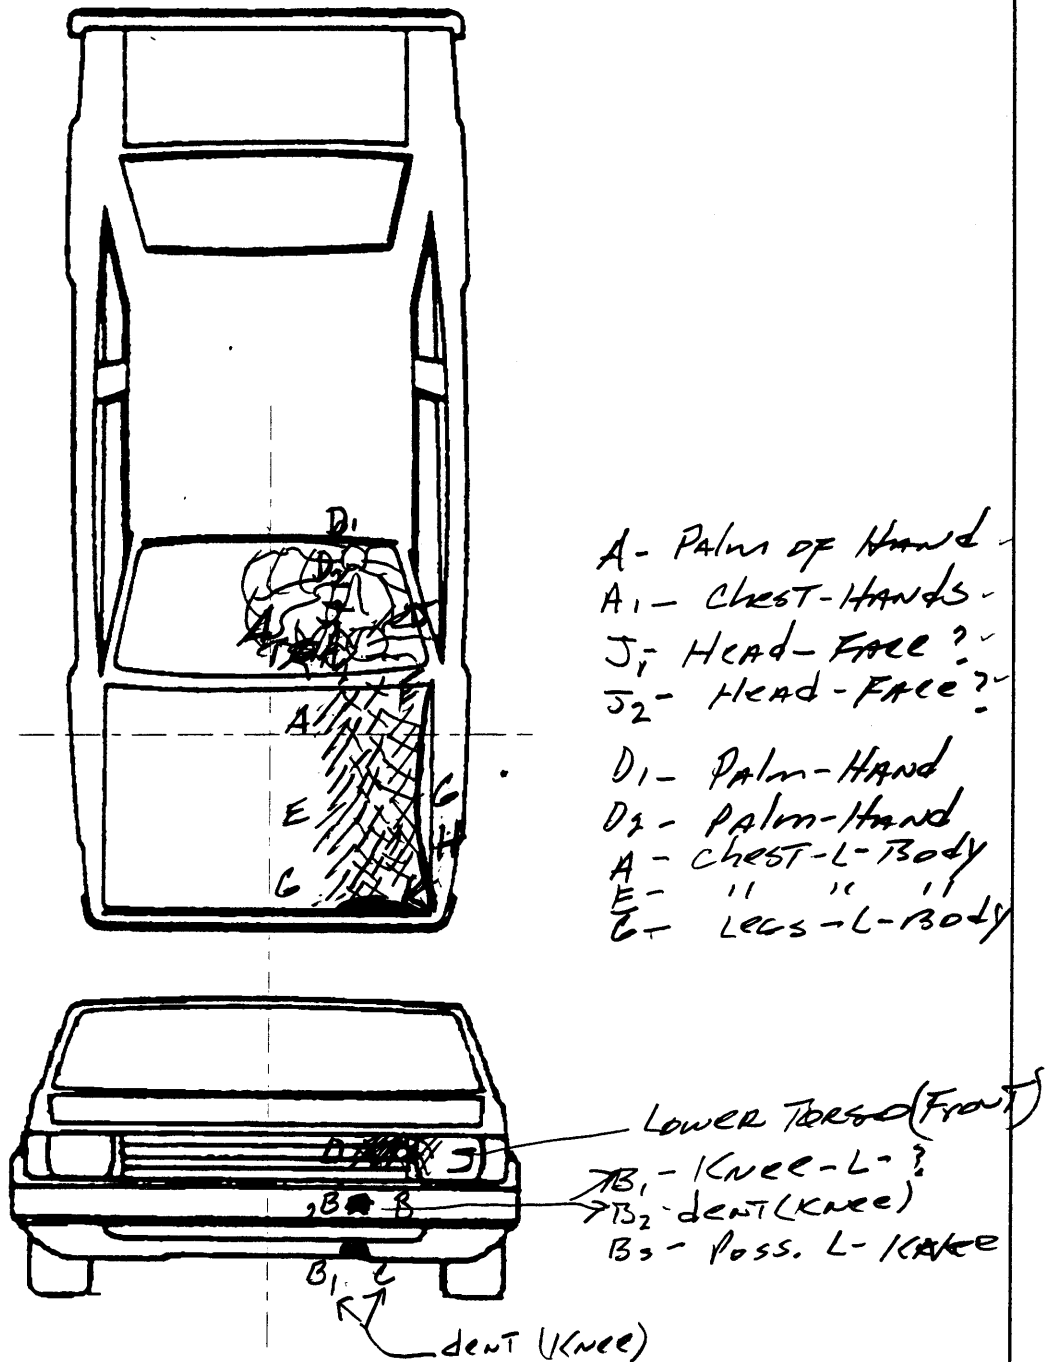 D1
D2
A
A
E
E
G
G
H
A - Palm of Hand
A1 - Chest - Hands
J1 - Head - Face ?
J2 - Head - Face ?
D1 - Palm - Hand
D2 - Palm - Hand
A - Chest - L - Body
E - " " "
G - Legs - L - Body
Lower Torso (Front)
D
J
B B
B1 - Knee - L - ?
B2 - dent (Knee)
B3 - Poss. L - Knee
B1 C
dent (Knee)